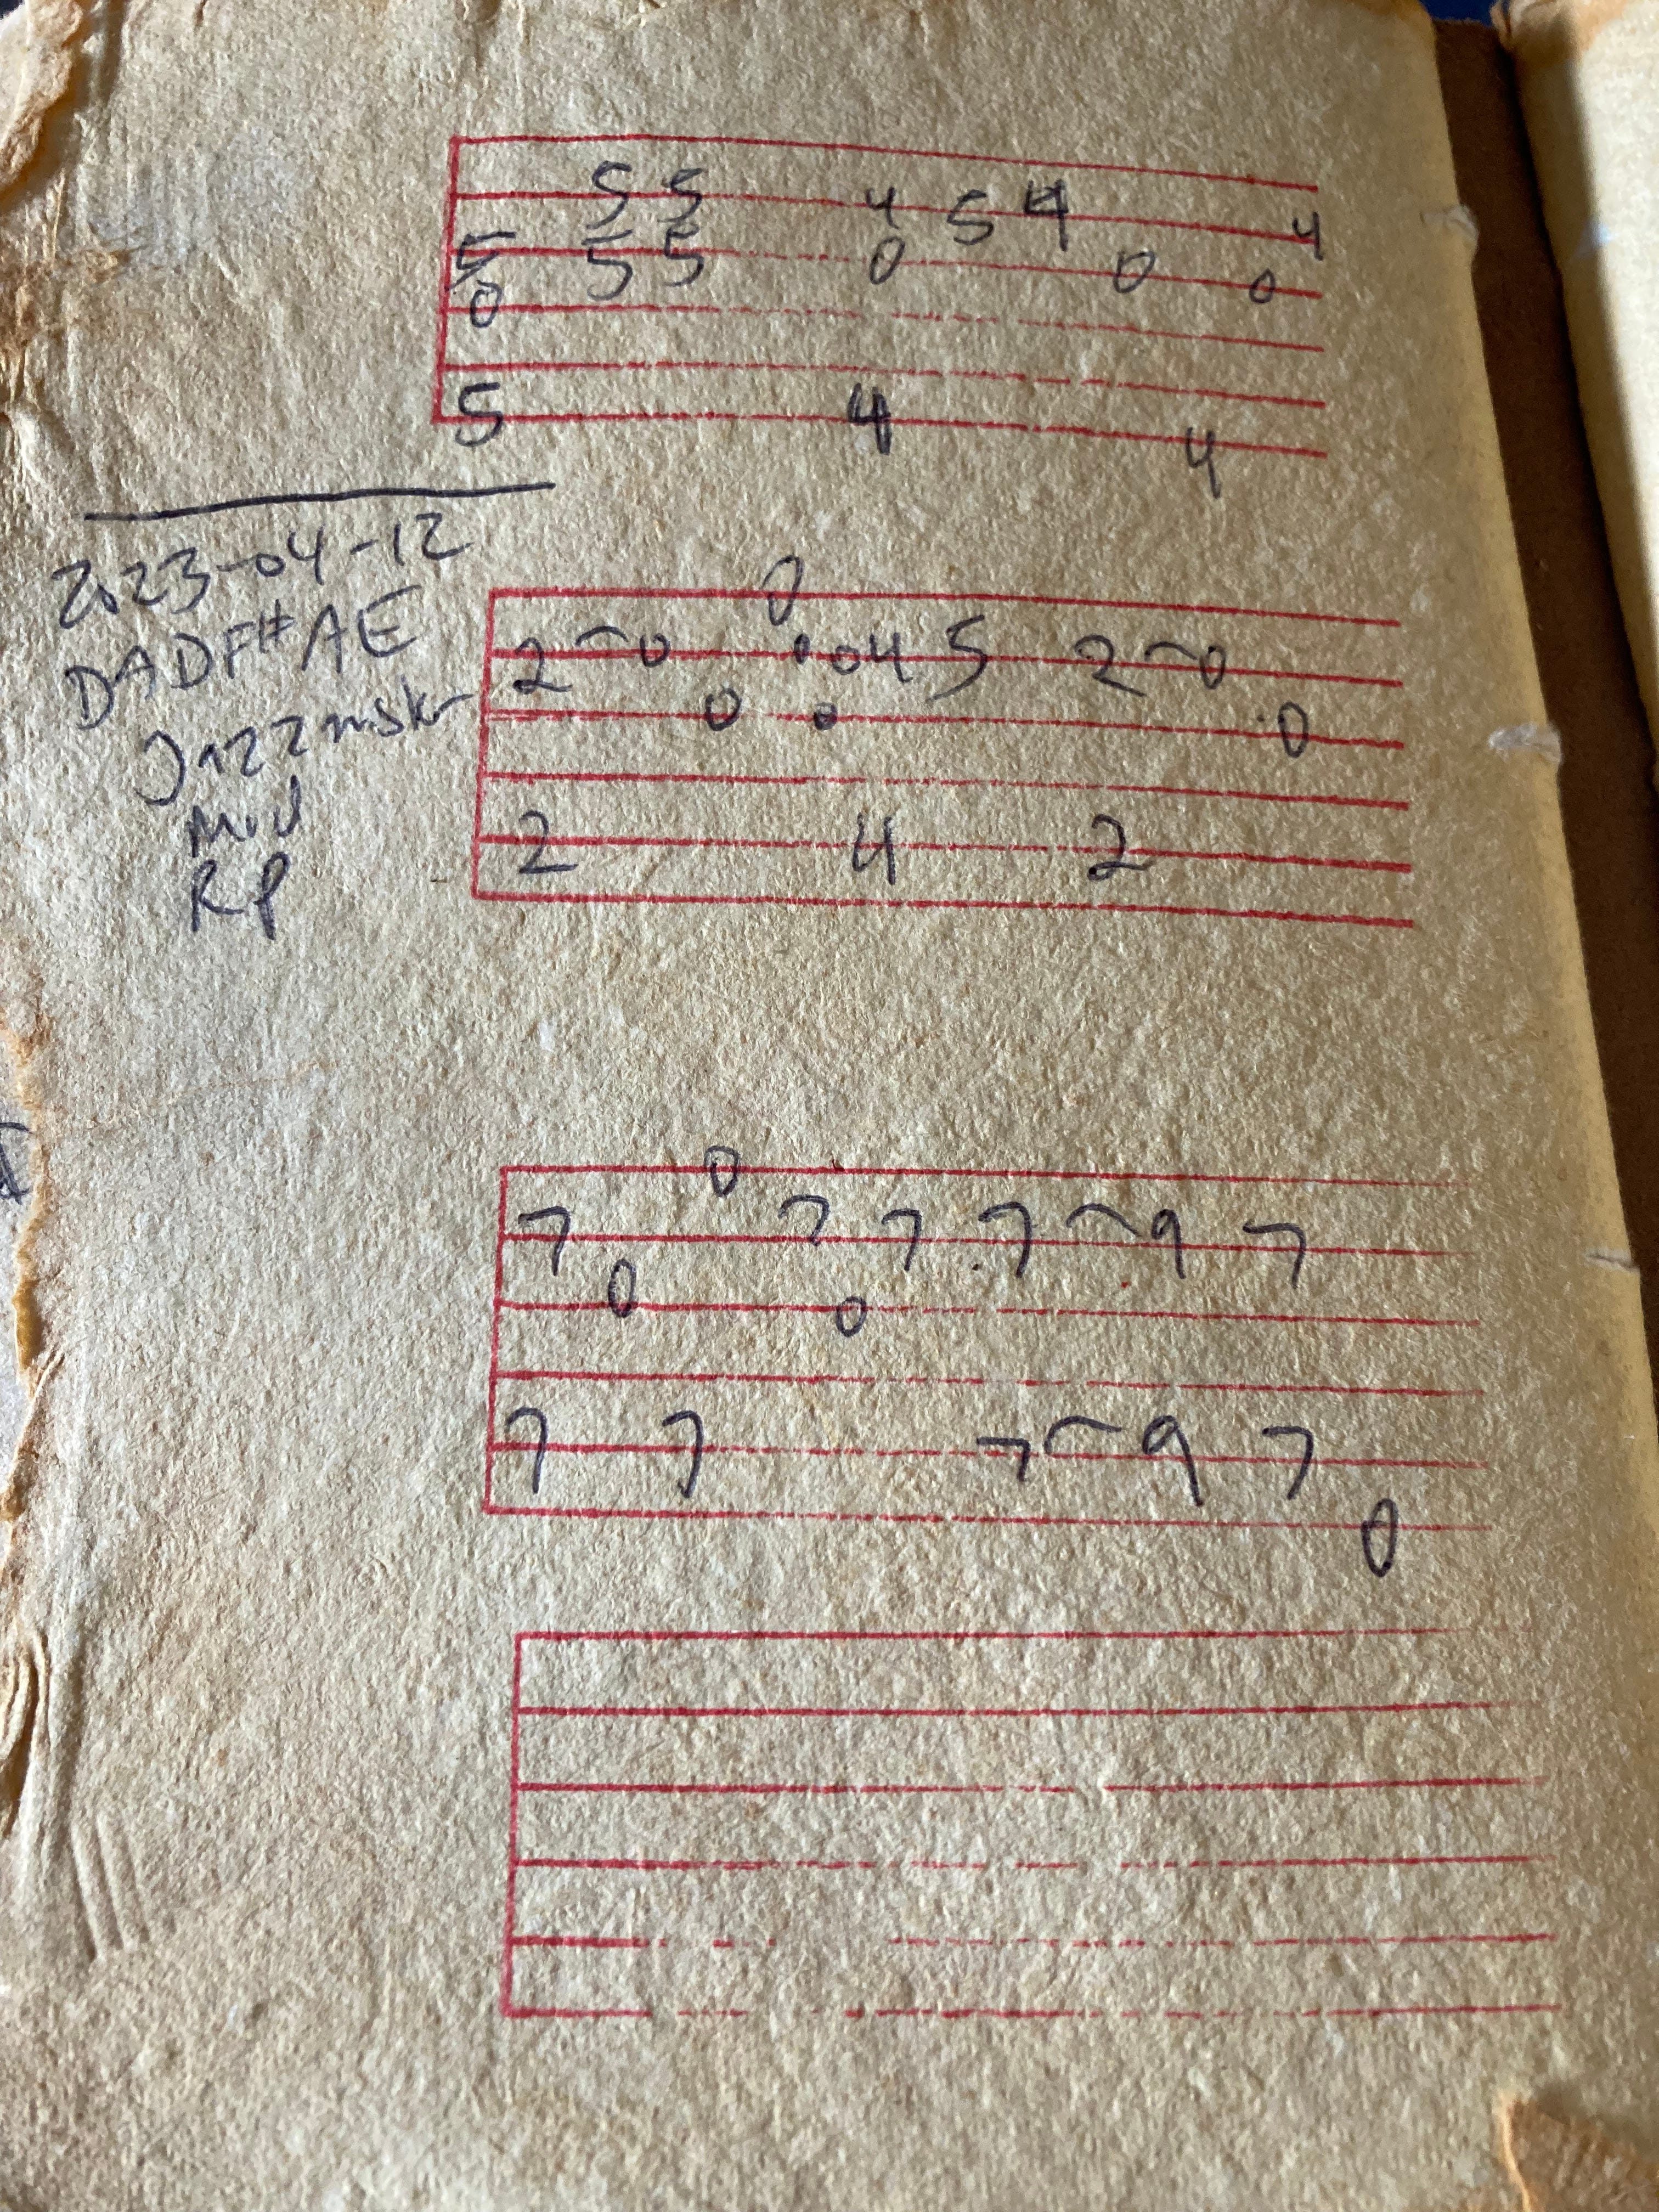 5 5 4 5 4 4
5 5 5 0 0 0
0
5 4 4
2023-04-12
DADF#AE
Jazzmstr
Mid
RP
0
2~0 0 4 5 2~0
0 0
2 4 2
0
7 7 7 7~9 7
0 0
7 7 7~9 7
0